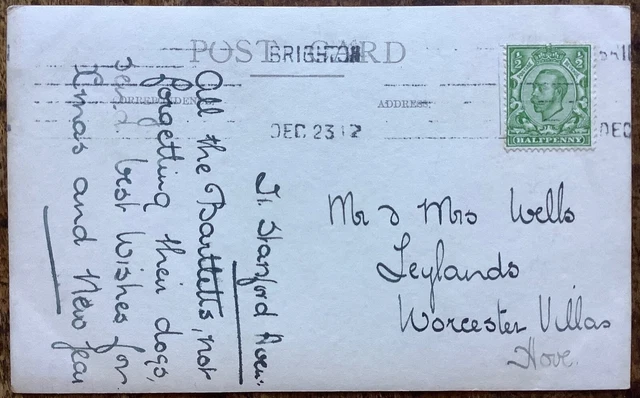 POST CARD
BRIGHTON
CORRESPONDENCE
ADDRESS
DEC 23 12
HALFPENNY
71. Stanford Aven:
All the Bartletts, not
forgetting their dogs,
send best wishes for
Xmas and New Year
Mr & Mrs Wells
Leylands
Worcester Villas
Hove.